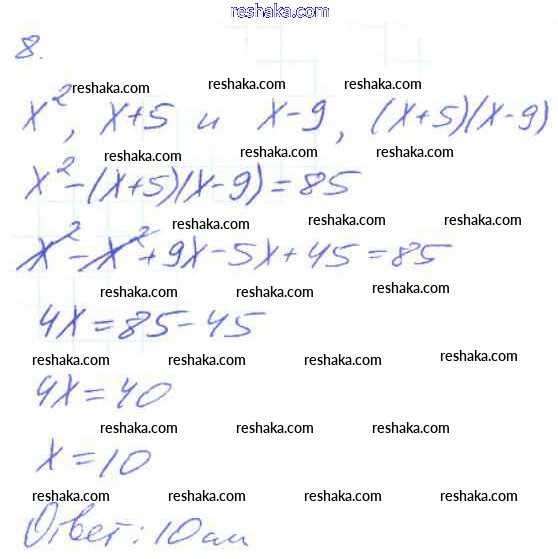 reshaka.com
8.
reshaka.com reshaka.com reshaka.com
x², x+5 и x-9, (x+5)(x-9)
reshaka.com reshaka.com
x²-(x+5)(x-9)=85
reshaka.com reshaka.com reshaka.com
x²-x²+9x-5x+45=85
reshaka.com reshaka.com reshaka.com
4x=85-45
reshaka.com reshaka.com reshaka.com reshaka.com
4x=40
reshaka.com reshaka.com reshaka.com
x=10
reshaka.com reshaka.com reshaka.com reshaka.com
Ответ: 10 см